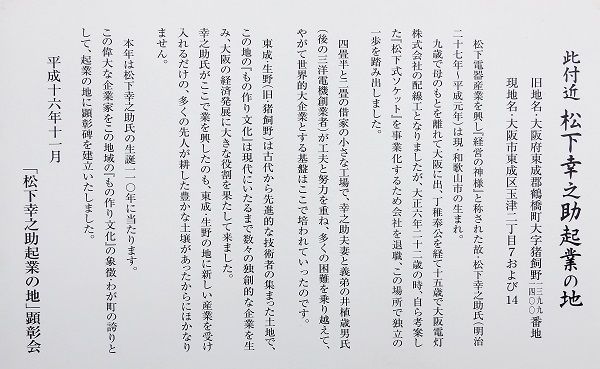 此付近 松下幸之助起業の地
旧地名・大阪府東成郡鶴橋町大字猪飼野一三九九一四〇〇番地
現地名・大阪市東成区玉津二丁目7および14
松下電器産業を興し『経営の神様』と称された故・松下幸之助氏(明治
二十七年～平成元年)は現・和歌山市の生まれ。
九歳で母のもとを離れて大阪に出、丁稚奉公を経て十五歳で大阪電灯
株式会社の配線工となりましたが、大正六年二十二歳の時、自ら考案し
た『松下式ソケット』を事業化するため会社を退職、この場所で独立の
一歩を踏み出しました。
四畳半と二畳の借家の小さな工場で、幸之助夫妻と義弟の井植歳男氏
(後の三洋電機創業者)が工夫と努力を重ね、多くの困難を乗り越えて、
やがて世界的大企業とする基盤はここで培われていったのです。
東成・生野(旧猪飼野)は古代から先進的な技術者の集まった土地で、
この地の『もの作り文化』は現代にいたるまで数々の独創的な企業を生
み、大阪の経済発展に大きな役割を果たして来ました。
幸之助氏がここで業を興したのも、東成・生野の地に新しい産業を受け
入れるだけの、多くの先人が耕した豊かな土壌があったからにほかなり
ません。
本年は松下幸之助氏の生誕一一〇年に当たります。
この偉大な企業家をこの地域の『もの作り文化』の象徴 わが町の誇りと
して、起業の地に顕彰碑を建立いたしました。
平成十六年十一月
「松下幸之助起業の地」顕彰会